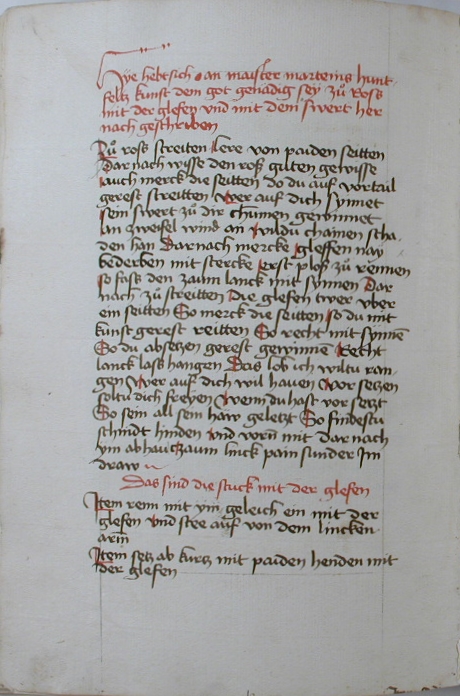 Hye hebt sich an maister marteins hunt-
feltz kunst dem got genadig sey zů Ross
mit der glefen vnd mit dem swert her
nach geschriben
Zů ross streiten lere von paiden seitten
Dar nach wisse den ross guten gewisse
auch merck die seitten do du auf vortail
gerest streitten wer auf dich synnet
sein swert zů dir chumen gewinnet
an zweifel wind an wildu chainen scha-
den han Dar nach mercke gleffen nay
bederben mit stercke erst ploss zů rennen
so fass den zaum lanck mit synnen Dar
nach zů streitten Die glefen twer vber
ein seitten So merck die seitten so du mit
kunst gerest reitten So recht mit synnē
So du absetzen gerest gewinnē Recht
lanck lass hangen Das lob ich wiltu ran-
gen Wer auf dich wil hauen Vor setzen
soltu dich freyen Wenn du hast vor setzt
So sein all sein haw geletzt So findestu
schindt hinden vnd vorn̄ mit dar nach
ym ab hau Zaum linck pain sunder Im
draw
Das sind die stuck mit der glefen
Item renn mit ym geleich ein mit der
glefen vnd stee auf von dem lincken
arm
Item setz ab kurtz mit paiden henden mit
der glefen